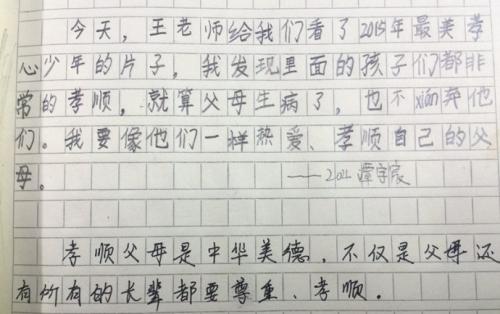 今天，王老师给我们看了2015年最美孝
心少年的片子，我发现里面的孩子们都非
常的孝顺，就算父母生病了，也不xián弃他
们。我要像他们一样热爱、孝顺自己的父
母。
——2021 谭宇宸
孝顺父母是中华美德，不仅是父母还
有所有的长辈都要尊重、孝顺。